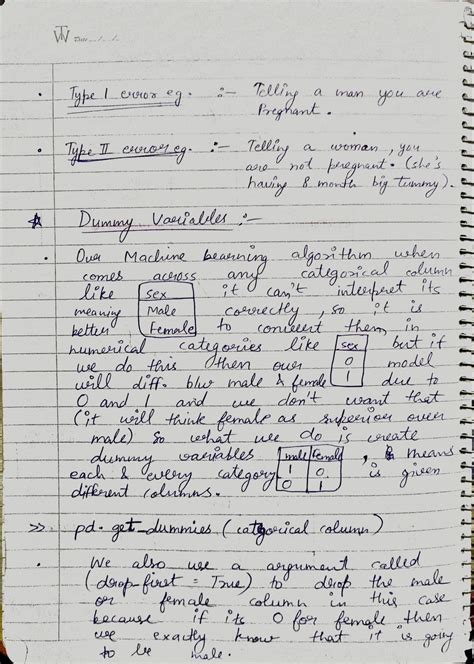 Date ../../..
• Type I error eg. :- Telling a man you are
Pregnant.
• Type II error eg. :- Telling a woman, you
are not pregnant. (she's
having 8 month big tummy).
☆ Dummy Variables :-
• Our Machine learning algorithm when
comes across any categorical column
like sex it can't interpret its
meaning Male correctly, so it is
better Female to convert them in
numerical categories like sex but if
we do this then our 0 model
will diff. b/w male & female 1 due to
0 and 1 and we don't want that
(it will think female as superior over
male) So what we do is create
dummy variables male Female , means
each & every category 1 0 is given
different columns. 0 1
>> pd. get_dummies (categorical column)
• We also use a argument called
(drop-first = True) to drop the male
or female column in this case
because if its 0 for female then
we exactly know that it is going
to be male.